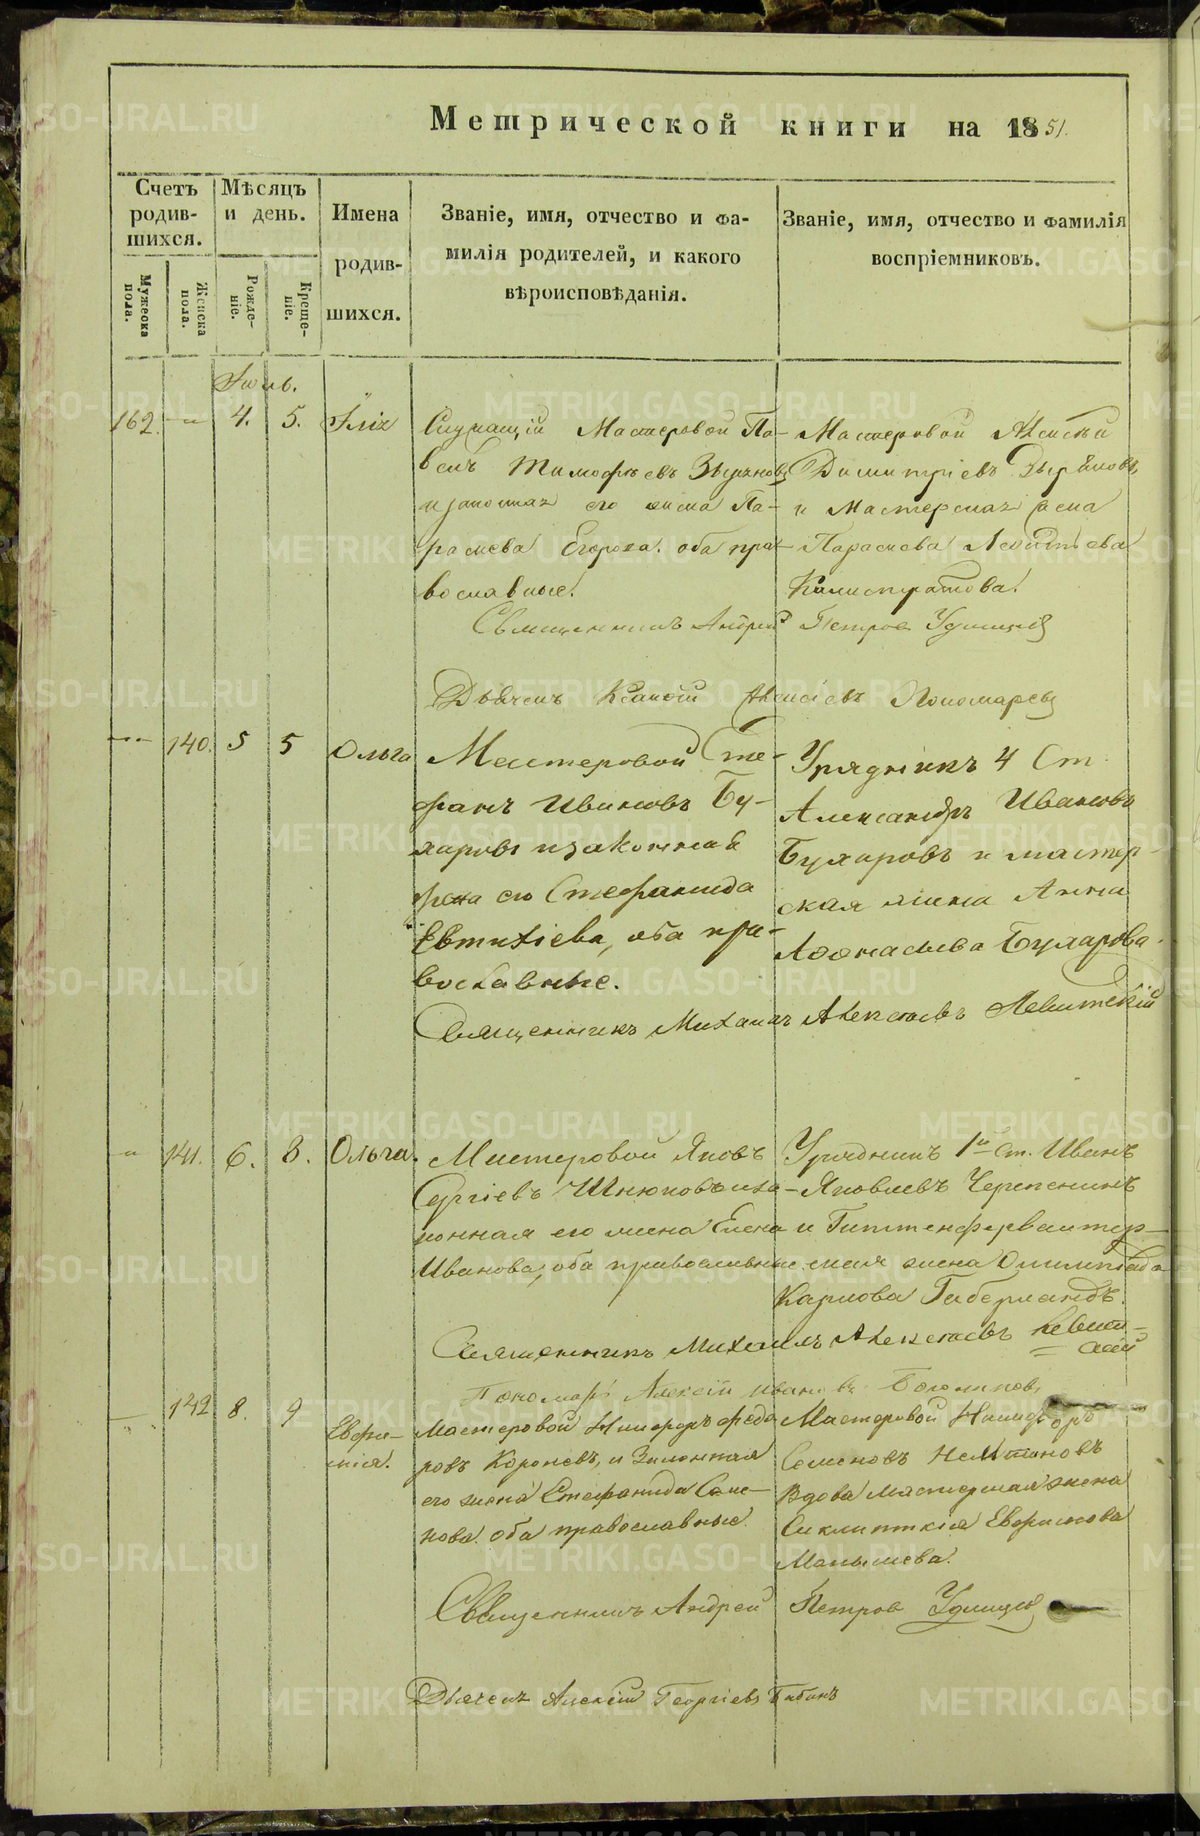 Метрической книги на 1851.
Счетъ родившихся.
Мѣсяцъ и день.
Имена родившихся.
Званіе, имя, отчество и фамилія родителей, и какого вѣроисповѣданія.
Званіе, имя, отчество и фамилія воспріемниковъ.
Мужеска пола.
Женска пола.
Рожденіе.
Крещеніе.
Іюль.
162. 4. 5. Илія
Служащій Мастеровой Па-
велъ Тимофѣевъ
и законная его жена Па-
раскева Егорова. оба пра-
вославные.
Мастеровой Алексѣй
Димитріевъ
и Мастерская жена
Параскева Леонтіева
Калистратова.
Священникъ Андрей Петровъ Удинцевъ
Дьячекъ Алексіевъ Пономаревъ
140. 5 5 Ольга
Мастеровой Сте-
фанъ Ивановъ Бу-
харовъ и законная
жена его Стефанида
Евтихіева, оба пра-
вославные.
Урядникъ 4 Ст.
Александръ Ивановъ
Бухаровъ и мастер-
ская жена Анна
Афонасьева Бухарова.
Священникъ Михаилъ Алексѣевъ Левитскій
141. 6. 8. Ольга.
Мастеровой Яковъ
Сергіевъ и за-
конная его жена Елена
Иванова, оба православные
Урядникъ 1й ст. Иванъ
Яковлевъ Черепенинъ
и Гиттенфервалтер-
ская жена Олимпіада
Карлова Габерландъ.
Священникъ Михаилъ Алексѣевъ Левит-
скій
Пономарь Алексій Ивановъ
142 8. 9 Евфи-
мія.
Мастеровой Никифоръ Федо
ровъ Королевъ, и Законная
его жена Стефанида Семе-
нова. оба православные.
Мастеровой Никифоръ
Семеновъ
Вдова Мастерская жена
Синклитикія Евфимова
Малышева.
Священникъ Андрей Петровъ Удинцевъ
Дьячекъ Алексій Георгіевъ Бабинъ
METRIKI.GASO-URAL.RU